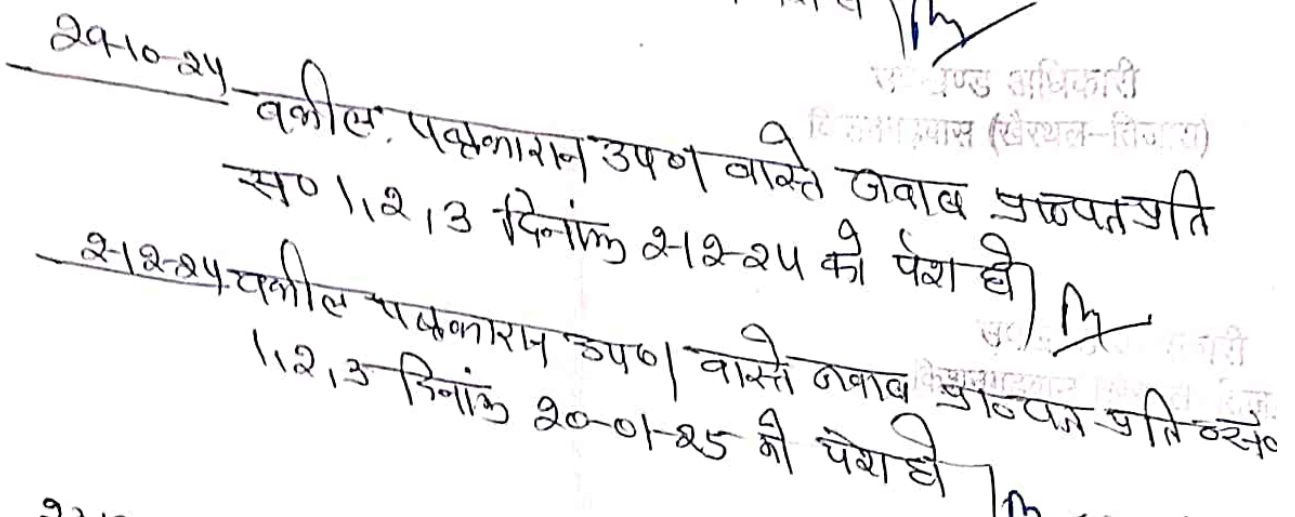 उपखण्ड अधिकारी
किशनगढ़बास (खैरथल-तिजारा)
29-10-24 वकील पक्षकारान उप० वास्ते जवाब प्रा०पत्र प्रति
स० 1,2,3 दिनांक 2-12-24 को पेश हो।
2-12-24 वकील पक्षकारान उप० वास्ते जवाब प्रा०पत्र प्रति स०
1,2,3 दिनांक 20-01-25 को पेश हो।